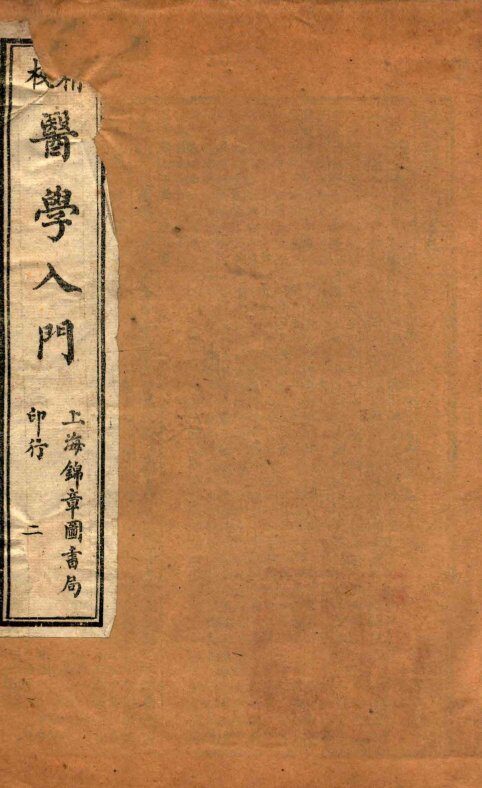 校
醫學入門
上海錦章圖書局
印行
二